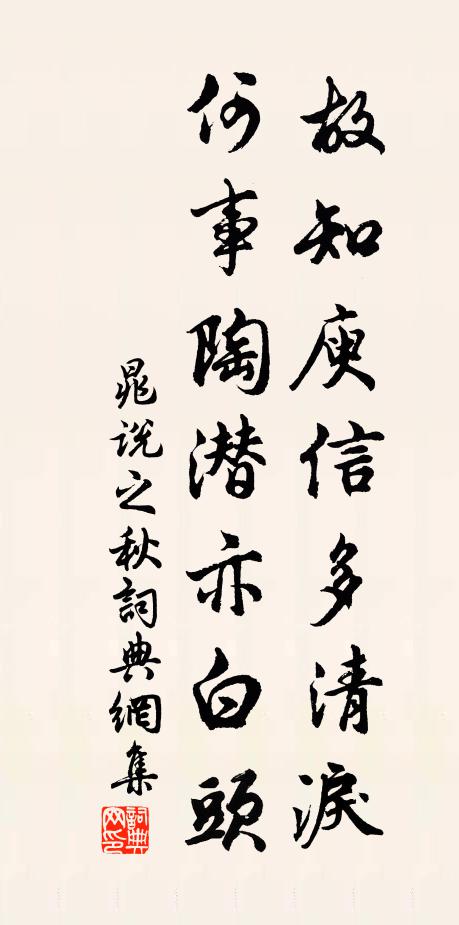 故知庾信多清淚
何事陶潜亦白頭
晁説之秋詞典網集
詞典网印